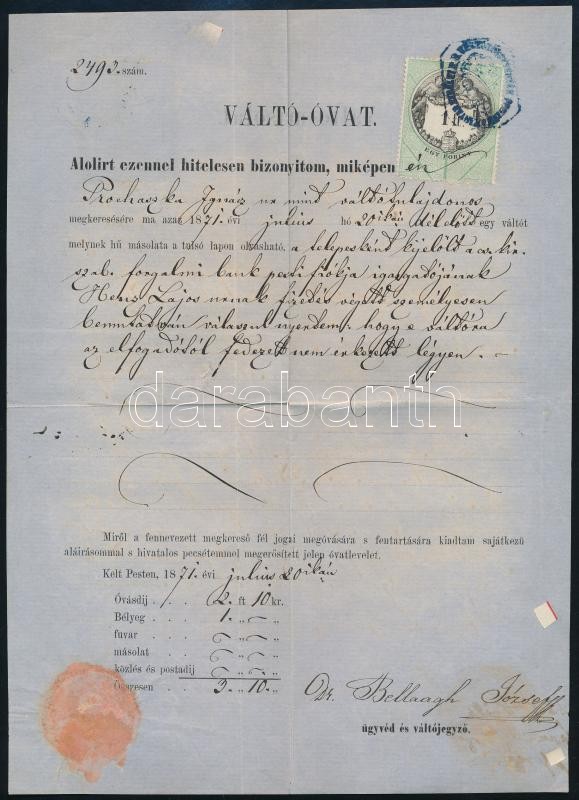 2493. szám.
1 ft
EGY FORINT
VÁLTÓ-ÓVAT.
Alolirt ezennel hitelesen bizonyitom, miképen én
Prochaszka Ignácz ur mint váltótulajdonos
megkeresésére ma azaz 1871. évi julius hó 20ikán délelőtt egy váltót
melynek hű másolata a tulsó lapon olvasható, a telepesként kijelölt a cs. kir.
szab. forgalmi bank pesti fiókja igazgatójának
Lajos urnak fizetés végett személyesen
bemutatván válaszul nyertem: hogy e váltóra
az elfogadótól fedezet nem érkezett légyen. –
darabanth
Miről a fennevezett megkereső fél jogai megóvására s fentartására kiadtam sajátkezü
aláirásommal s hivatalos pecsétemmel megerősitett jelen óvatlevelet.
Kelt Pesten, 1871. évi julius 20ikán
Óvásdij . . . 2 ft 10 kr.
Bélyeg . . 1. „ – „
fuvar . . . – „ – „
másolat . . – „ – „
közlés és postadij – „ – „
Összesen . . 3. „ 10. – „
Dr. Bellaagh József
ügyvéd és váltójegyző.